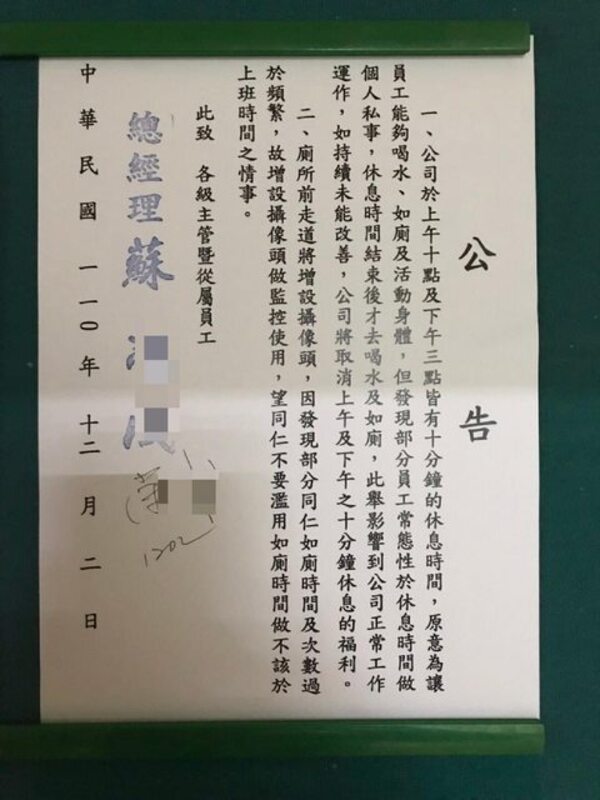 公告
一、公司於上午十點及下午三點皆有十分鐘的休息時間，原意為讓
員工能夠喝水、如廁及活動身體，但發現部分員工常態性於休息時間做
個人私事，休息時間結束後才去喝水及如廁，此舉影響到公司正常工作
運作，如持續未能改善，公司將取消上午及下午之十分鐘休息的福利。
二、廁所前走道將增設攝像頭，因發現部分同仁如廁時間及次數過
於頻繁，故增設攝像頭做監控使用，望同仁不要濫用如廁時間做不該於
上班時間之情事。
此致 各級主管暨從屬員工
總經理 蘇
1202
中華民國一一○年十二月二日